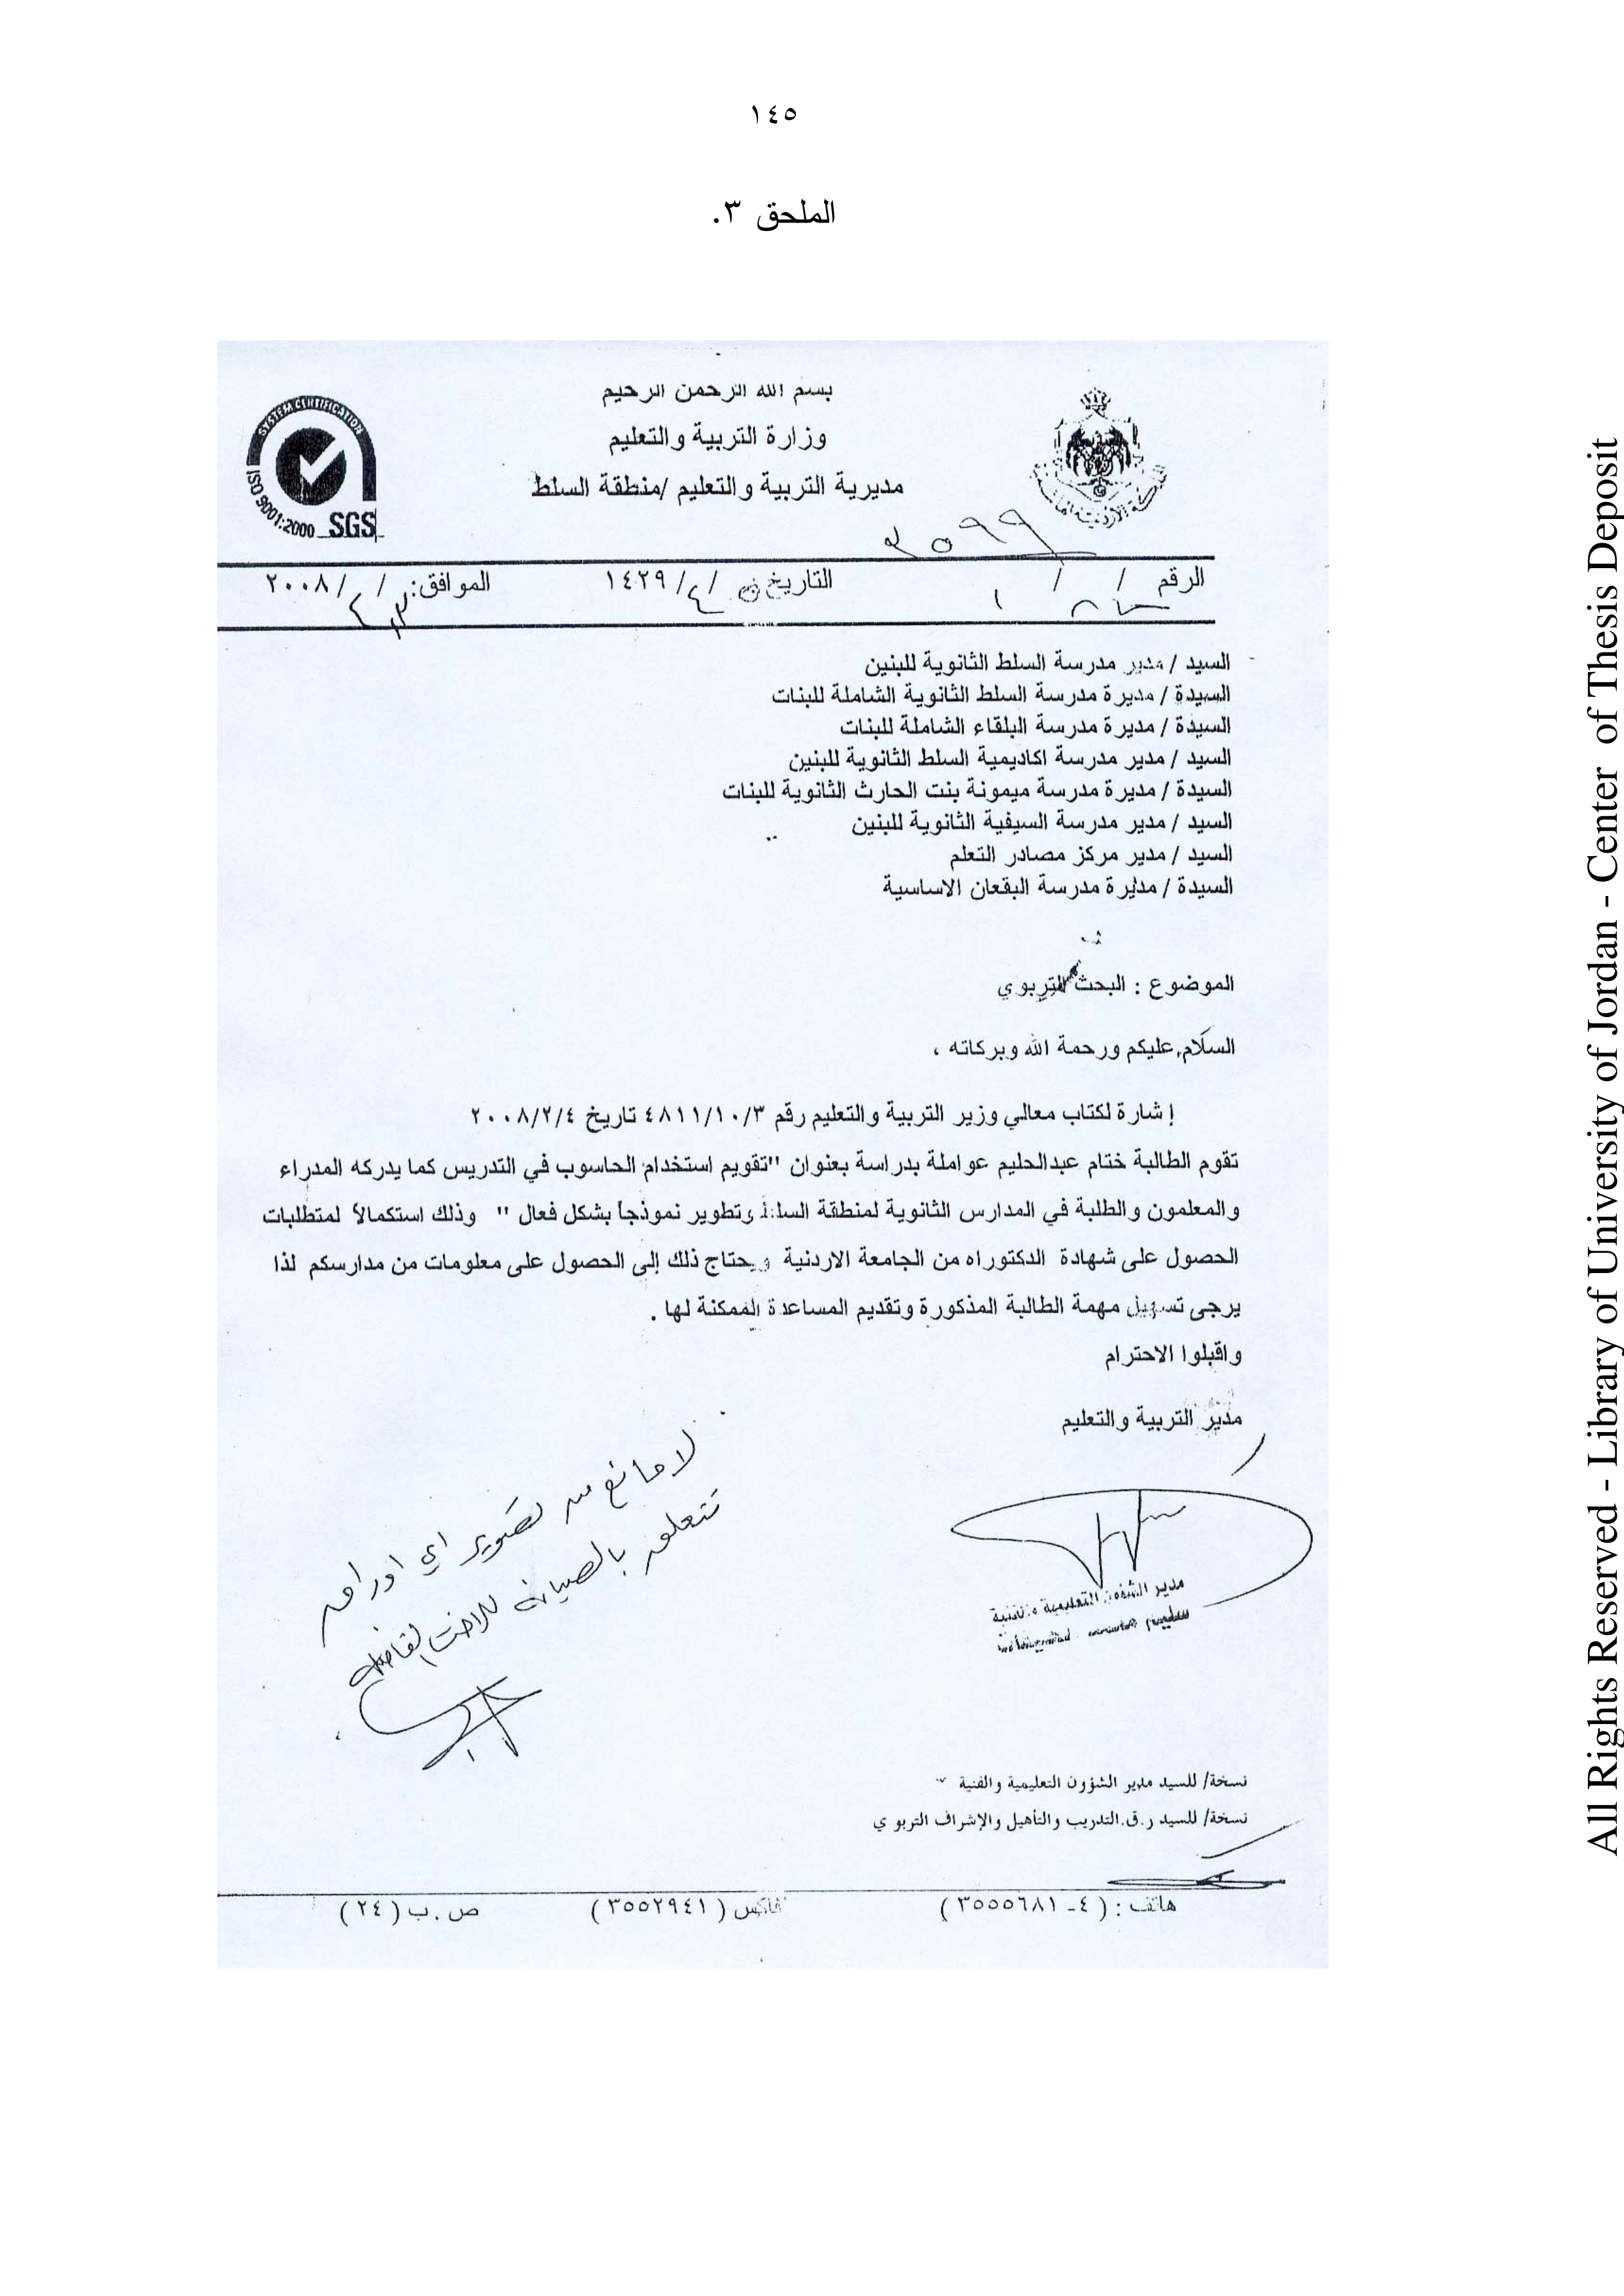 ١٤٥
الملحق ٣.
بسم الله الرحمن الرحيم
وزارة التربية والتعليم
مديرية التربية والتعليم /منطقة السلط
SYSTEM CERTIFICATION
ISO 9001:2000
SGS
٢٥٩٩
الرقم / /
التاريخ / ٤ / ١٤٢٩
الموافق: / / ٢٠٠٨
السيد / مدير مدرسة السلط الثانوية للبنين
السيدة / مديرة مدرسة السلط الثانوية الشاملة للبنات
السيدة / مديرة مدرسة البلقاء الشاملة للبنات
السيد / مدير مدرسة اكاديمية السلط الثانوية للبنين
السيدة / مديرة مدرسة ميمونة بنت الحارث الثانوية للبنات
السيد / مدير مدرسة السيفية الثانوية للبنين
السيد / مدير مركز مصادر التعلم
السيدة / مديرة مدرسة البقعان الاساسية
الموضوع : البحث التربوي
السلام عليكم ورحمة الله وبركاته ،
إشارة لكتاب معالي وزير التربية والتعليم رقم ٤٨١١/١٠/٣ تاريخ ٢٠٠٨/٢/٤
تقوم الطالبة ختام عبدالحليم عواملة بدراسة بعنوان "تقويم استخدام الحاسوب في التدريس كما يدركه المدراء
والمعلمون والطلبة في المدارس الثانوية لمنطقة السلط وتطوير نموذجاً بشكل فعال " وذلك استكمالاً لمتطلبات
الحصول على شهادة الدكتوراه من الجامعة الاردنية ويحتاج ذلك إلى الحصول على معلومات من مدارسكم لذا
يرجى تسهيل مهمة الطالبة المذكورة وتقديم المساعدة الممكنة لها .
واقبلوا الاحترام
مدير التربية والتعليم
مدير الشؤون التعليمية والفنية
لا مانع من تصوير اي اوراق
تتعلق بالصيانة للاخت الفاضلة
نسخة/ للسيد مدير الشؤون التعليمية والفنية
نسخة/ للسيد ر.ق.التدريب والتأهيل والإشراف التربوي
هاتف : ( ٤- ٣٥٥٥٦٨١ )
فاكس ( ٣٥٥٢٩٤١ )
ص.ب ( ٢٤ )
All Rights Reserved - Library of University of Jordan - Center of Thesis Deposit